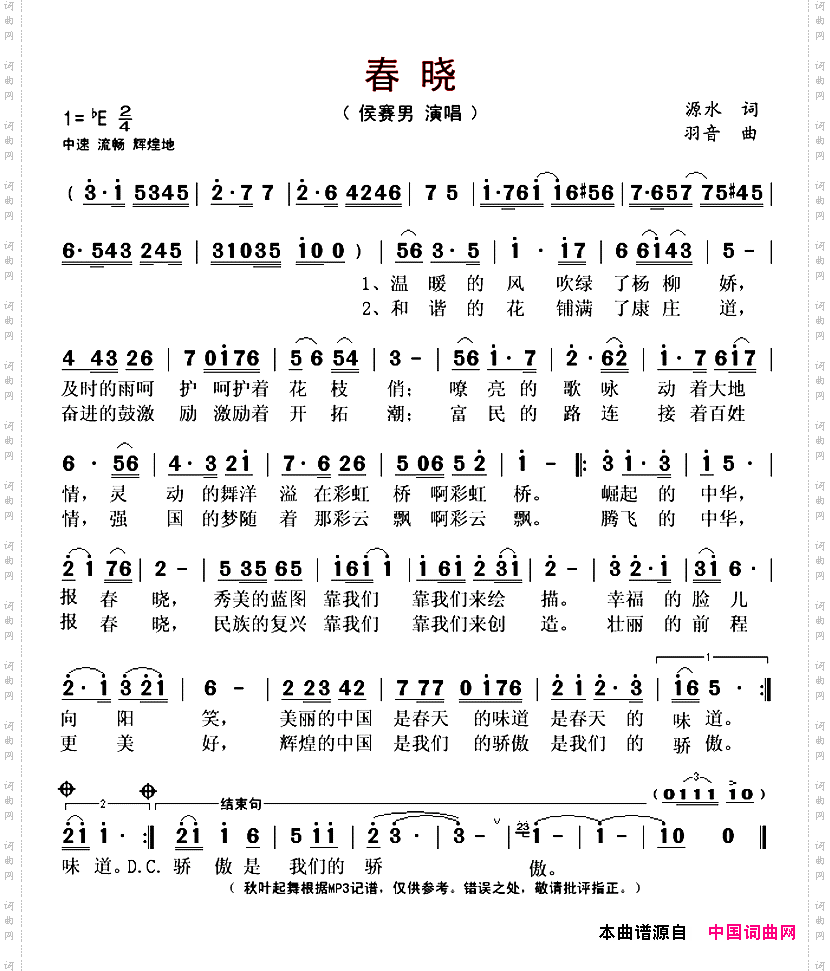 春 晓
( 侯赛男 演唱 )
1= ♭E 2/4
中速 流畅 辉煌地
源水 词
羽音 曲
( 3·1 5345 | 2·7 7 | 2·6 4246 | 7 5 | 1·761 16#56 | 7·657 75#45 |
6·543 245 | 31035 100 ) | 56 3·5 | 1· 17 | 6 6143 | 5 - |
1、温 暖 的 风 吹绿 了杨 柳 娇,
2、和 谐 的 花 铺满 了康 庄 道,
4 43 26 | 7 0176 | 5 6 54 | 3 - | 56 1·7 | 2·62 | 1·7 617 |
及时的雨呵 护 呵护着 花 枝 俏; 嘹 亮 的 歌 咏 动 着大地
奋进的鼓激 励 激励着 开 拓 潮; 富 民 的 路 连 接 着百姓
6· 56 | 4·3 21 | 7·6 26 | 5 06 52 | 1 - |: 3 1·3 | 1 5· |
情, 灵 动 的舞洋 溢 在彩虹 桥 啊彩虹 桥。 崛起 的 中华,
情, 强 国 的梦随 着 那彩云 飘 啊彩云 飘。 腾飞 的 中华,
2 1 76 | 2 - | 5 35 65 | 161 1 | 1 61 2 31 | 2 - | 3 2·1 | 31 6· |
报 春 晓, 秀美的蓝图 靠我们 靠我们来绘 描。 幸福 的 脸 儿
报 春 晓, 民族的复兴 靠我们 靠我们来创 造。 壮丽 的 前 程
2·1 321 | 6 - | 2 23 42 | 7 77 0 176 | 2 1 2·3 | 16 5· :||
1
向 阳 笑, 美丽的中国 是春天 的味道 是春天 的 味 道。
更 美 好, 辉煌的中国 是我们 的骄傲 是我们 的 骄 傲。
2
结束句
3
( 0111 10 )
21 1· :|| 21 1 6 | 5 11 | 2 3· | 3 - | 23 1 - | 1 - | 10 0 ||
味 道。D.C. 骄 傲 是 我们的 骄 傲。
( 秋叶起舞根据MP3记谱,仅供参考。错误之处,敬请批评指正。)
本曲谱源自 中国词曲网
词曲网